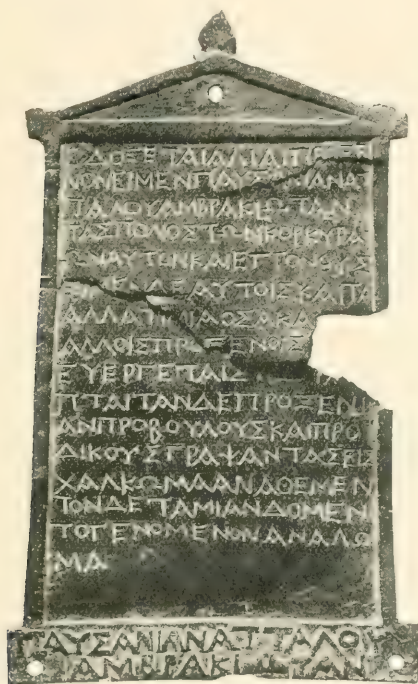 ΕΔΟΞΕΤΑΙΑΛΙΑΙΠΡΟΞΕ
ΝΟΝΕΙΜΕΝΠΑΥΣΑΝΙΑΝΑΤ
ΤΑΛΟΥΑΜΒΡΑΚΙΩΤΑΝ
ΤΑΣΠΟΛΙΟΣΤΩΝΚΟΡΚΥΡΑ
ΩΝΑΥΤΟΝΚΑΙΕΓΓΟΝΟΥΣ
ΕΙΜΕΝΔΕΑΥΤΟΙΣΚΑΙΤΑ
ΑΛΛΑΤΙΜΙΑΟΣΑΚΑΙ
ΑΛΛΟΙΣΠΡΟΞΕΝΟΙΣ
ΕΥΕΡΓΕΤΑΙΣ
ΠΤΑΙΤΑΝΔΕΠΡΟΞΕΝΙ
ΑΝΠΡΟΒΟΥΛΟΥΣΚΑΙΠΡΟ
ΔΙΚΟΥΣΓΡΑΨΑΝΤΑΣΕΙΣ
ΧΑΛΚΩΜΑΑΝΑΘΕΜΕΝ
ΤΟΝΔΕΤΑΜΙΑΝΔΟΜΕΝ
ΤΟΓΕΝΟΜΕΝΟΝΑΝΑΛΩ
ΜΑ
ΠΑΥΣΑΝΙΑΝΑΤΤΑΛΟΥ
ΑΜΒΡΑΚΙΩΤΑΝ